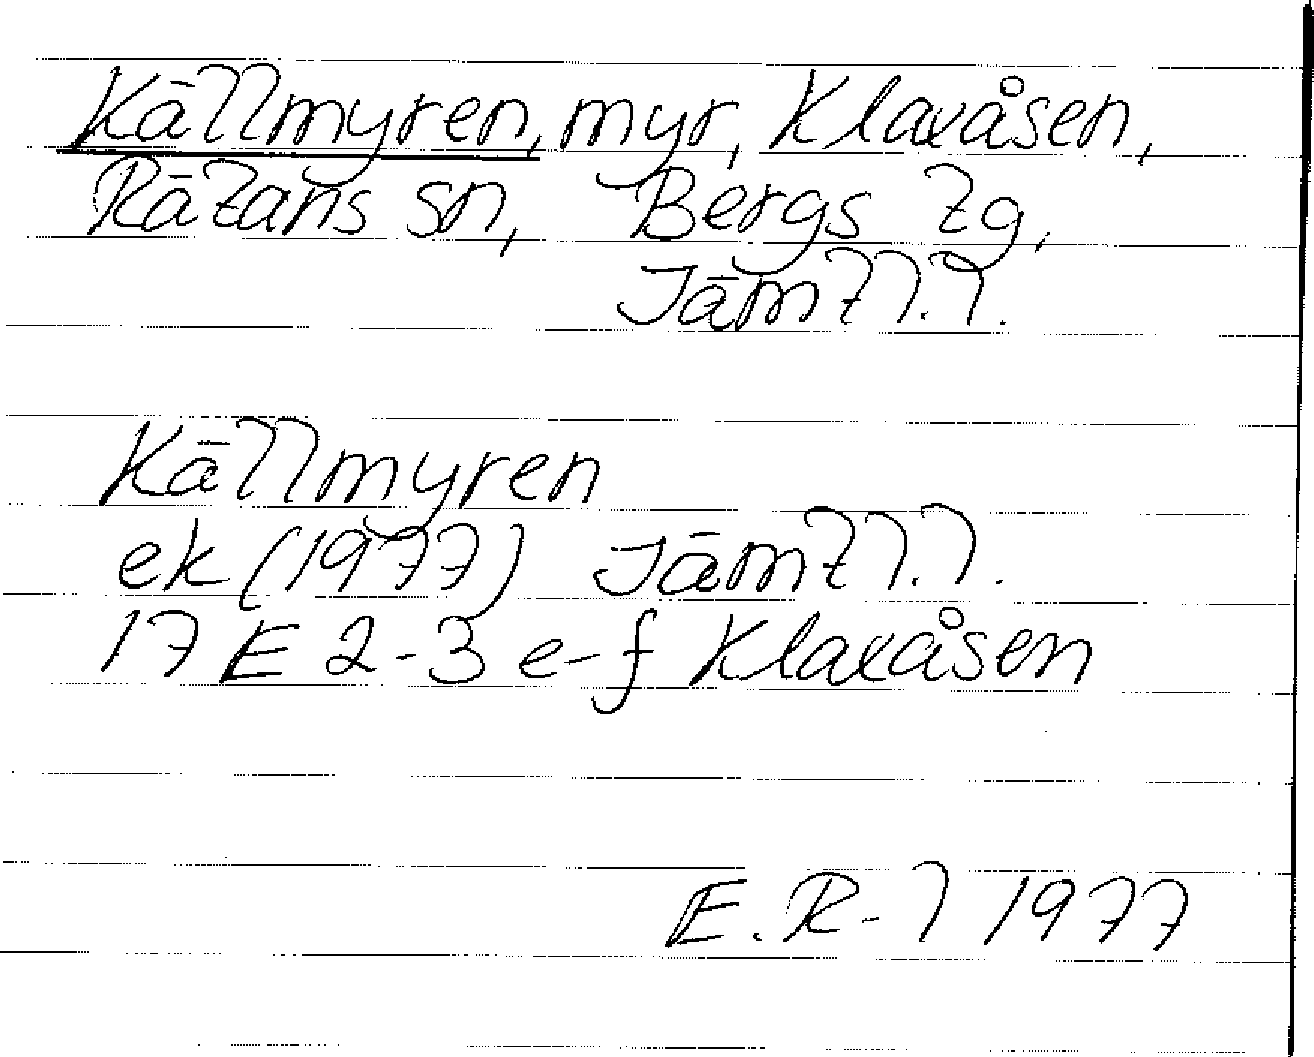 Källmyren, myr, Klaxåsen,
Rätans sn, Bergs tg,
Jämtl.l.
Källmyren
ek (1977) Jämtl.l.
17 E 2-3 e-f Klaxåsen
E.R-l 1977